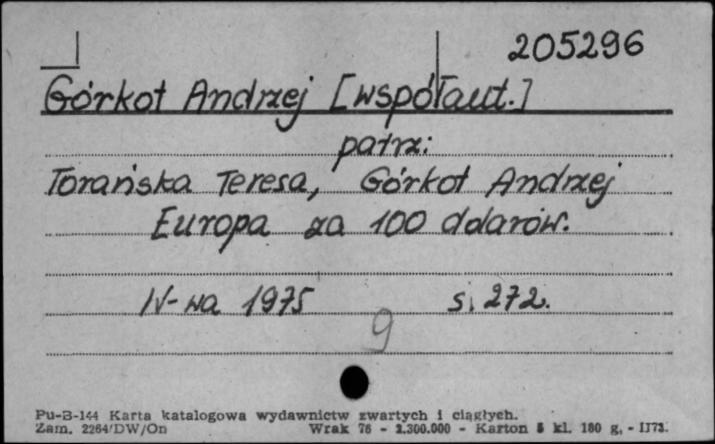 205296
Górkot Andrzej [współaut.]
patrz:
Torańska Teresa, Górkot Andrzej
Europa za 100 dolarów.
W-wa 1975 s. 272.
9
Pu-B-144 Karta katalogowa wydawnictw zwartych i ciągłych.
Zam. 2264/DW/On Wrak 76 - 2.300.000 - Karton kl. 180 g,